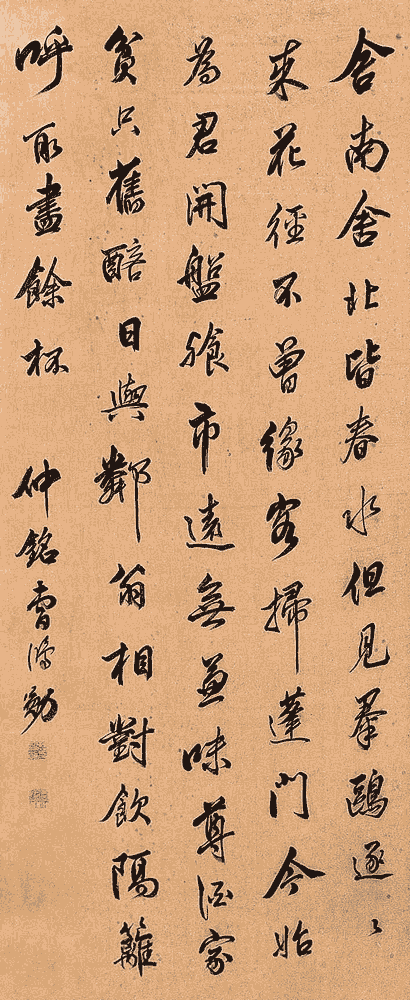 舍南舍北皆春水但見羣鷗逐〻
來花徑不曾緣客掃蓬門今始
為君開盤飱市遠無兼味尊酒家
貧只舊醅日與鄰翁相對飲隔籬
呼取盡餘杯 仲銘曹鴻勳